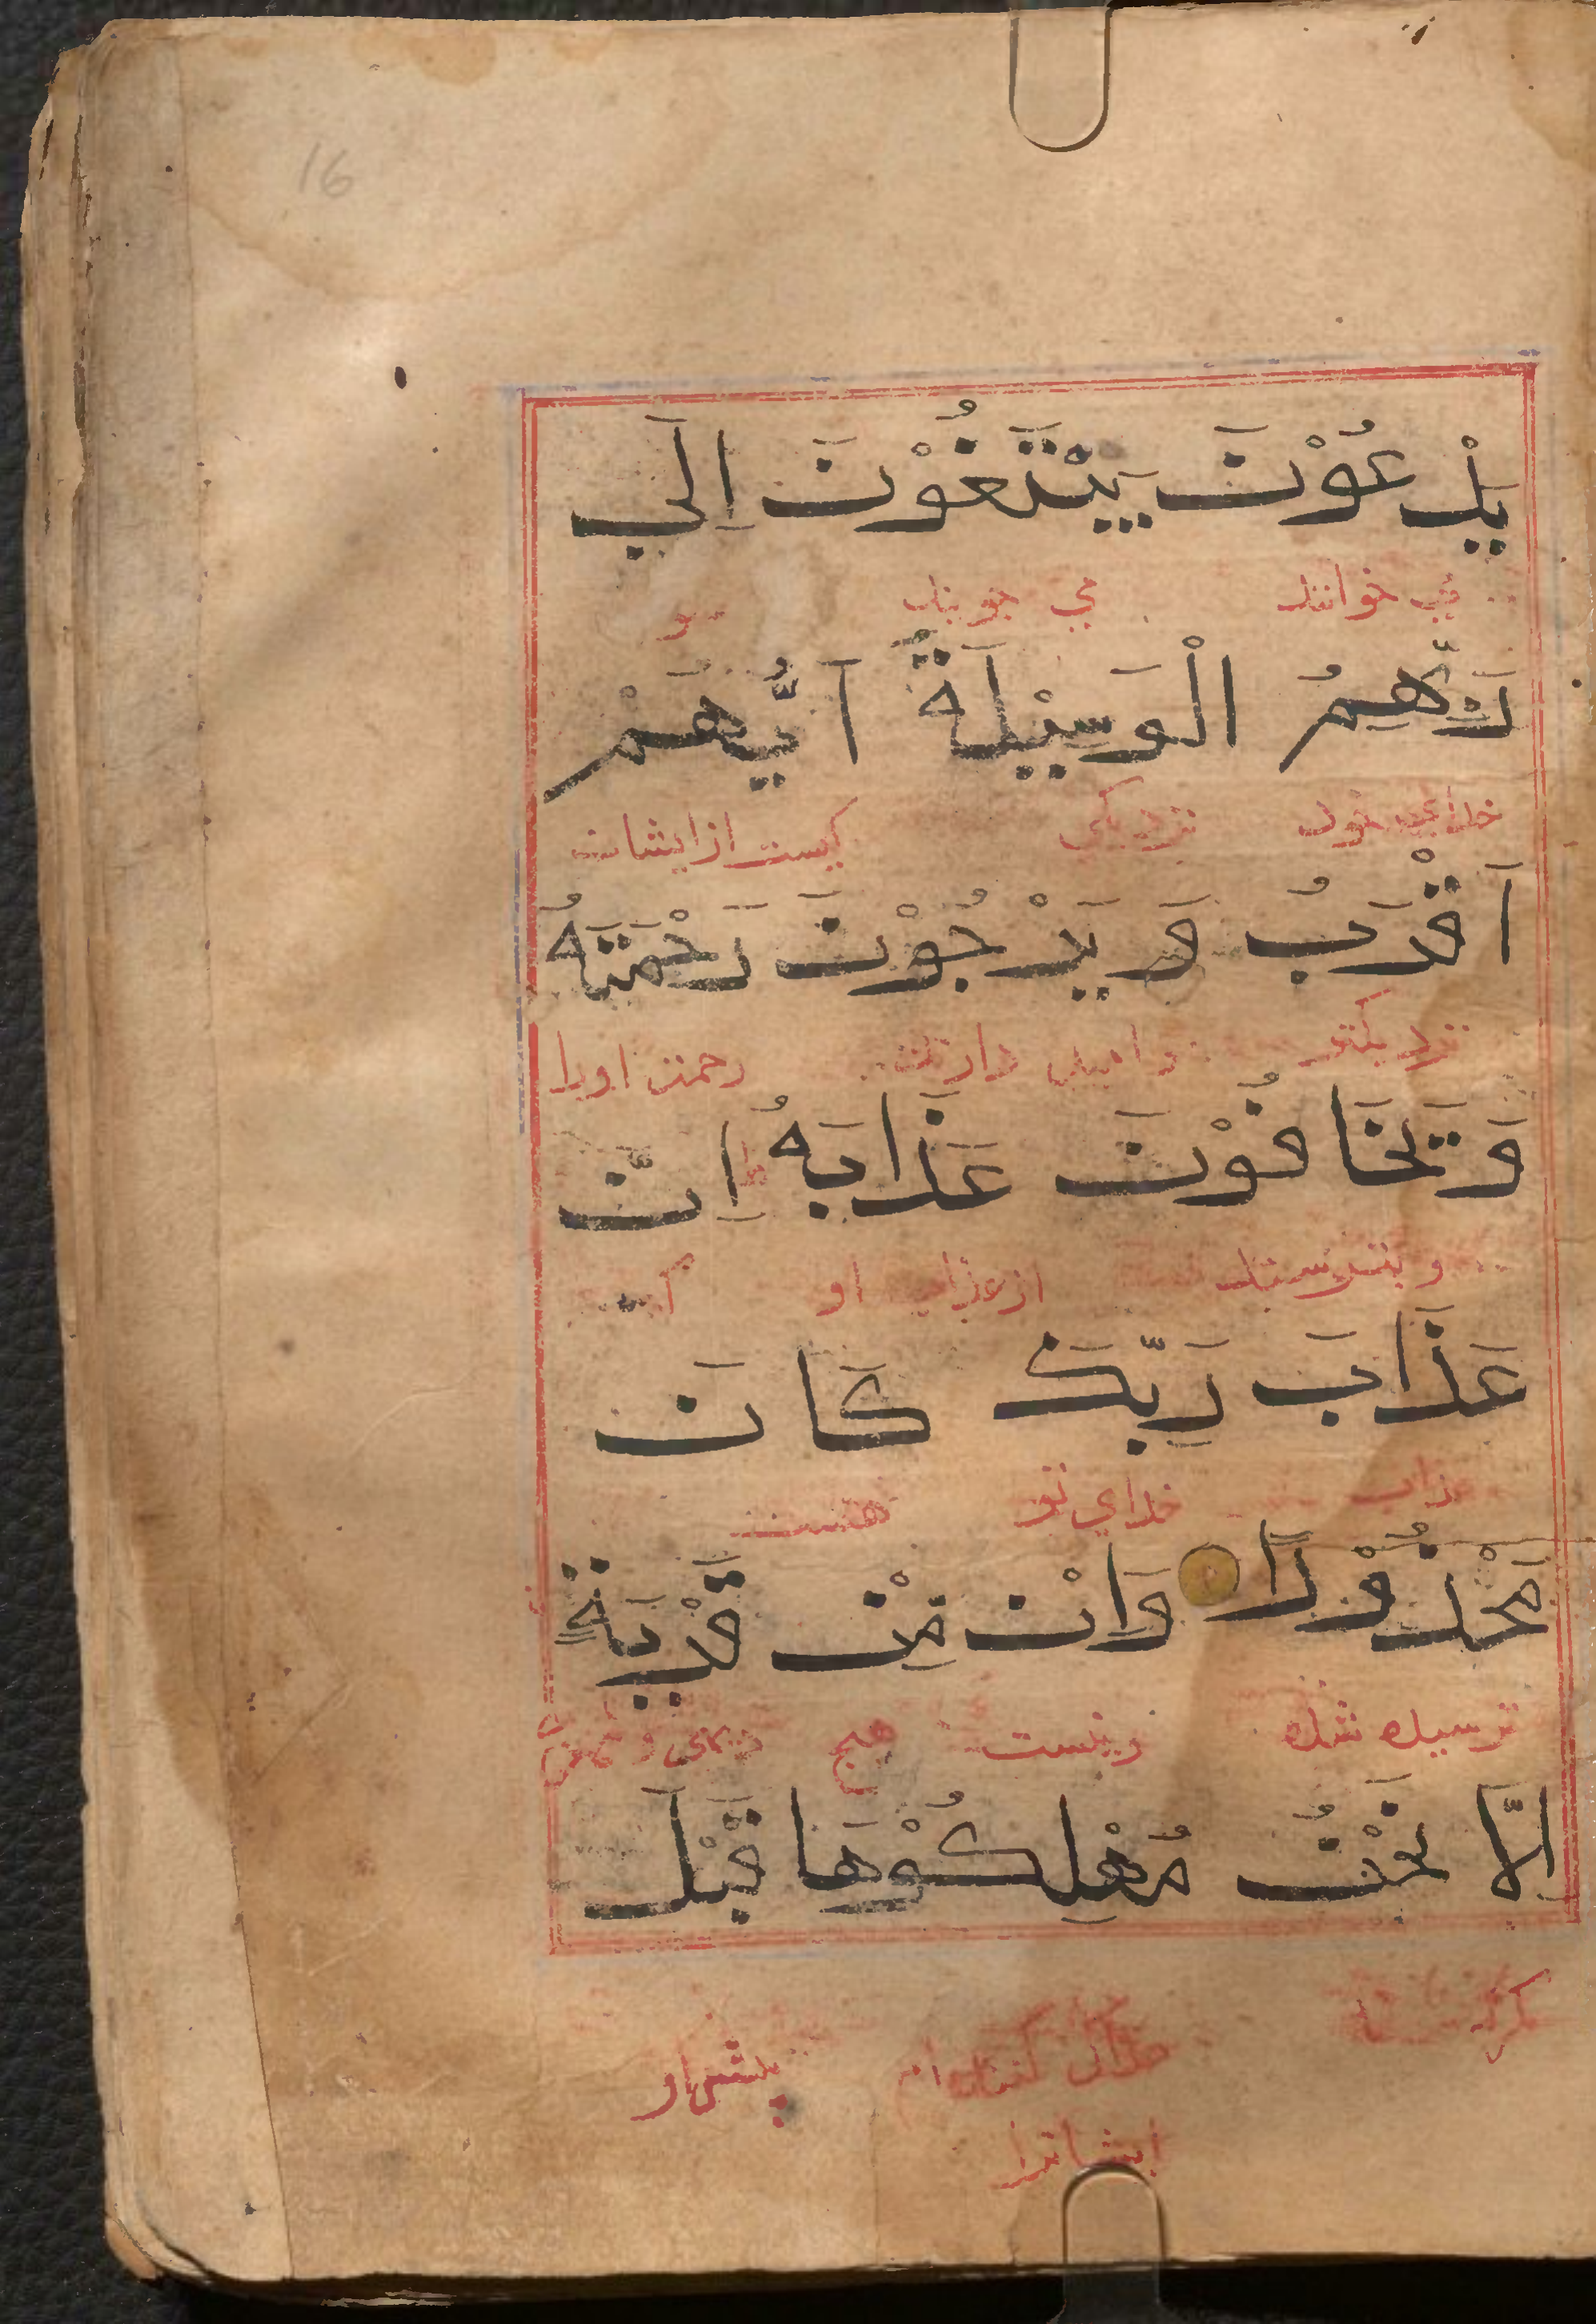 16
يَدْعُوْنَ يَبْتَغُوْنَ اِلَى
مي خوانند مي جويند سو
رَبِّهِمُ الْوَسِيْلَةَ اَيُّهُمْ
خداي خود نزديكي كيست از ايشان
اَقْرَبُ وَ يَرْجُوْنَ رَحْمَتَهُ
نزديكتر و اميد دارند رحمت اورا
وَ يَخَافُوْنَ عَذَابَهُ اِنَّ
و بترسند از عذاب او كه
عَذَابَ رَبِّكَ كَانَ
عذاب خداي تو هست
مَحْذُوْرًا وَاِنْ مِنْ قَرْيَةٍ
ترسيده شده و نيست هيچ ديهي و
اِلَّا نَحْنُ مُهْلِكُوْهَا قَبْلَ
مگر ما هلاك كننده ام پيشتر از
ايشانرا